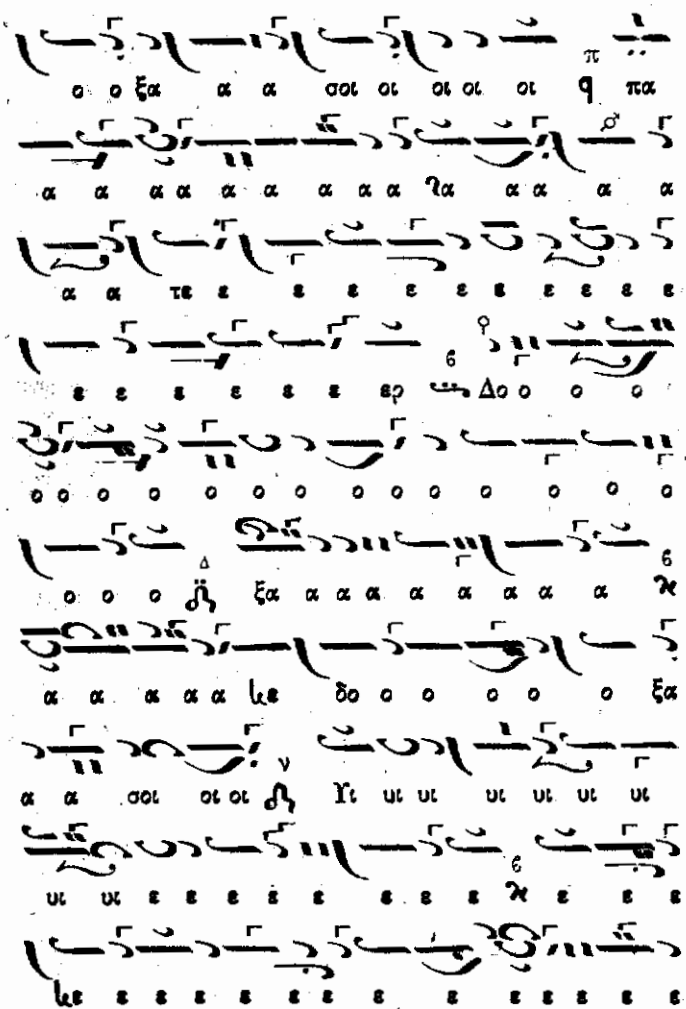 ο ο ξα α α σοι οι οι οι οι π q πα
α α α α α α α α α α α α α
α α τε ε ε ε ε ε ε ε ε ε ε
ε ε ε ε ε ε ερ ϐ Δο ο ο ο
ο ο ο ο ο ο ο ο ο ο ο ο ο ο
ο ο ο Δ ξα α α α α α α α α ϐ
α α α α α δο ο ο ο ο ο ξα
α α σοι οι οι ν Υι υι υι υι υι υι υι
υι υι ε ε ε ε ε ε ε ε ϐ ε ε ε
ε ε ε ε ε ε ε ε ε ε ε ε ε